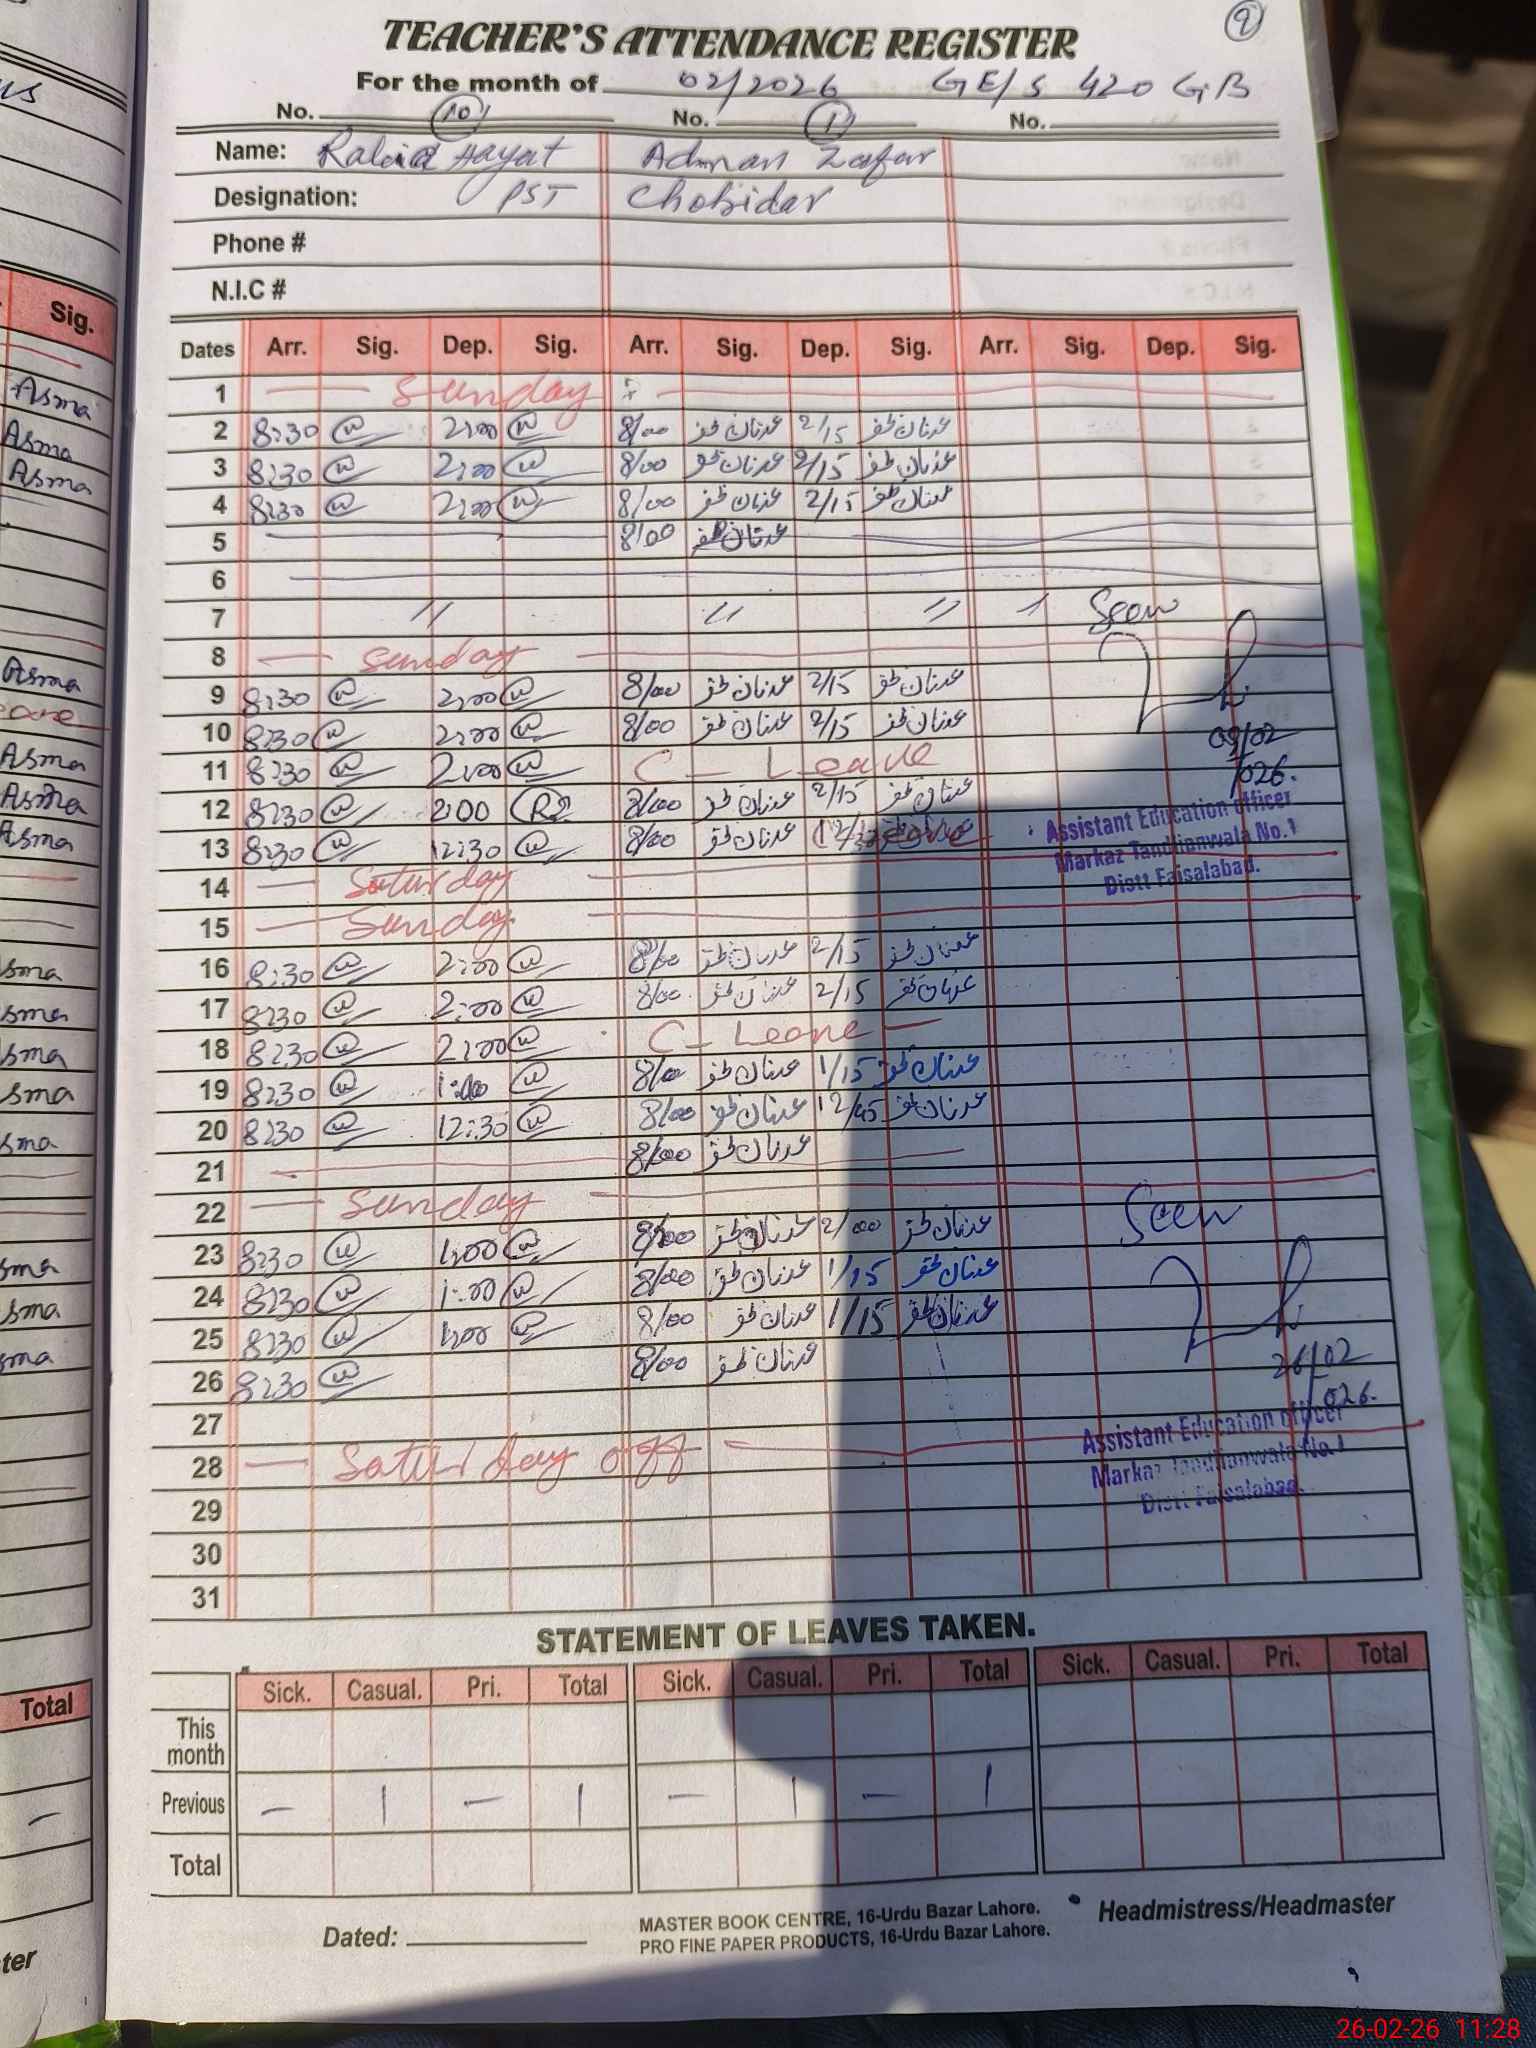 TEACHER'S ATTENDANCE REGISTER
For the month of 02/2026 GE/S 420 GB
No. 10 No. 1 No.
Name: Rabia Hayat Adnan Zafar
Designation: PST Chokidar
Phone #
N.I.C #
Dates Arr. Sig. Dep. Sig. Arr. Sig. Dep. Sig. Arr. Sig. Dep. Sig.
1 — Sunday —
2 8:30 2:00 8/00 عدنان ظفر 2/15 عدنان ظفر
3 8:30 2:00 8/00 عدنان ظفر 2/15 عدنان ظفر
4 8:30 2:00 8/00 عدنان ظفر 2/15 عدنان ظفر
5 8/00 عدنان ظفر
6
7 // // // // Seen
8 — Sunday —
9 8:30 2:00 8/00 عدنان ظفر 2/15 عدنان ظفر
10 8:30 2:00 8/00 عدنان ظفر 2/15 عدنان ظفر
09/02
/026.
11 8:30 2:00 C – Leave
12 8:30 2:00 8/00 عدنان ظفر 2/15 عدنان ظفر
13 8:30 12:30 8/00 عدنان ظفر
Assistant Education officer
Markaz Tandlianwala No.1
Distt Faisalabad.
14 — Saturday —
15 — Sunday —
16 8:30 2:00 8/00 عدنان ظفر 2/15 عدنان ظفر
17 8:30 2:00 8/00 عدنان ظفر 2/15 عدنان ظفر
18 8:30 2:00 C – Leave —
19 8:30 1:00 8/00 عدنان ظفر 1/15 عدنان ظفر
20 8:30 12:30 8/00 عدنان ظفر 12/45 عدنان ظفر
21 8/00 عدنان ظفر
22 — Sunday — Seen
23 8:30 1:00 8/00 عدنان ظفر 2/00 عدنان ظفر
24 8:30 1:00 8/00 عدنان ظفر 1/15 عدنان ظفر
25 8:30 1:00 8/00 عدنان ظفر 1/15 عدنان ظفر
26 8:30 8/00 عدنان ظفر
26/02
/026.
27
28 — Saturday off —
Assistant Education officer
Markaz Tandlianwala No.1
Distt Faisalabad.
29
30
31
STATEMENT OF LEAVES TAKEN.
Sick. Casual. Pri. Total Sick. Casual. Pri. Total Sick. Casual. Pri. Total
This month
Previous — 1 — 1 — 1 — 1
Total
Dated:
MASTER BOOK CENTRE, 16-Urdu Bazar Lahore.
PRO FINE PAPER PRODUCTS, 16-Urdu Bazar Lahore.
Headmistress/Headmaster
Sig.
Asma
Asma
Asma
Asma
Asma
Asma
Asma
sma
sma
sma
sma
sma
sma
sma
sma
Total
—
ter
26-02-26 11:28